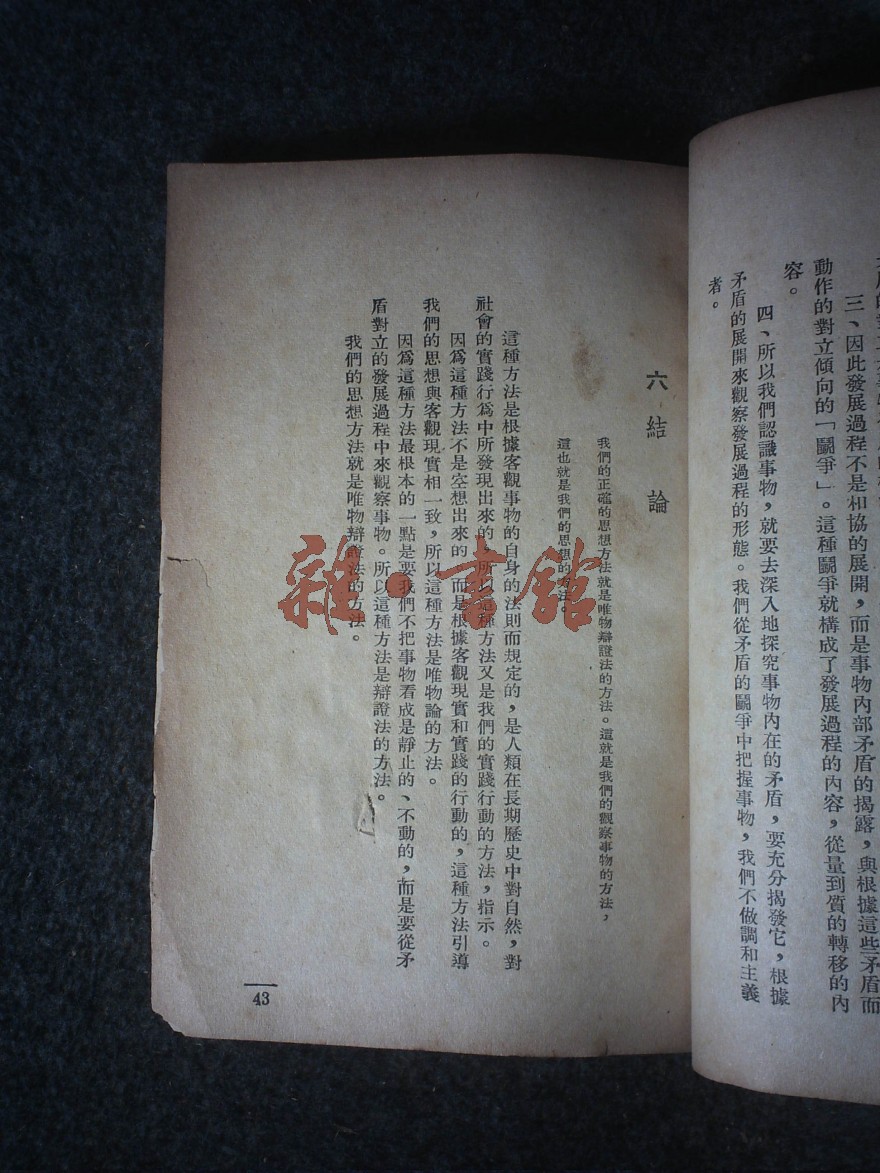 三、因此發展過程不是相協的展開，而是事物內部矛盾的揭露，與根據這些矛盾而
動作的對立傾向的「鬭爭」。這種鬭爭就構成了發展過程的內容，從量到質的轉移的內
容。
四、所以我們認識事物，就要去深入地探究事物內在的矛盾，要充分揭發它，根據
矛盾的展開來觀察發展過程的形態。我們從矛盾的鬭爭中把握事物，我們不做調和主義
者。
六 結論
我們的正確的思想方法就是唯物辯證法的方法。這就是我們的觀察事物的方法，
這也就是我們的思想的方法。
這種方法是根據客觀事物的自身的法則而規定的，是人類在長期歷史中對自然，對
社會的實踐行爲中所發現出來的，所以這種方法又是我們的實踐行動的方法，指示。
因爲這種方法不是空想出來的，而是根據客觀現實和實踐的行動的，這種方法引導
我們的思想與客觀現實相一致，所以這種方法是唯物論的方法。
因爲這種方法最根本的一點是要我們不把事物看成是靜止的、不動的，而是要從矛
盾對立的發展過程中來觀察事物。所以這種方法是辯證法的方法。
我們的思想方法就是唯物辯證法的方法。
43
雜·書館